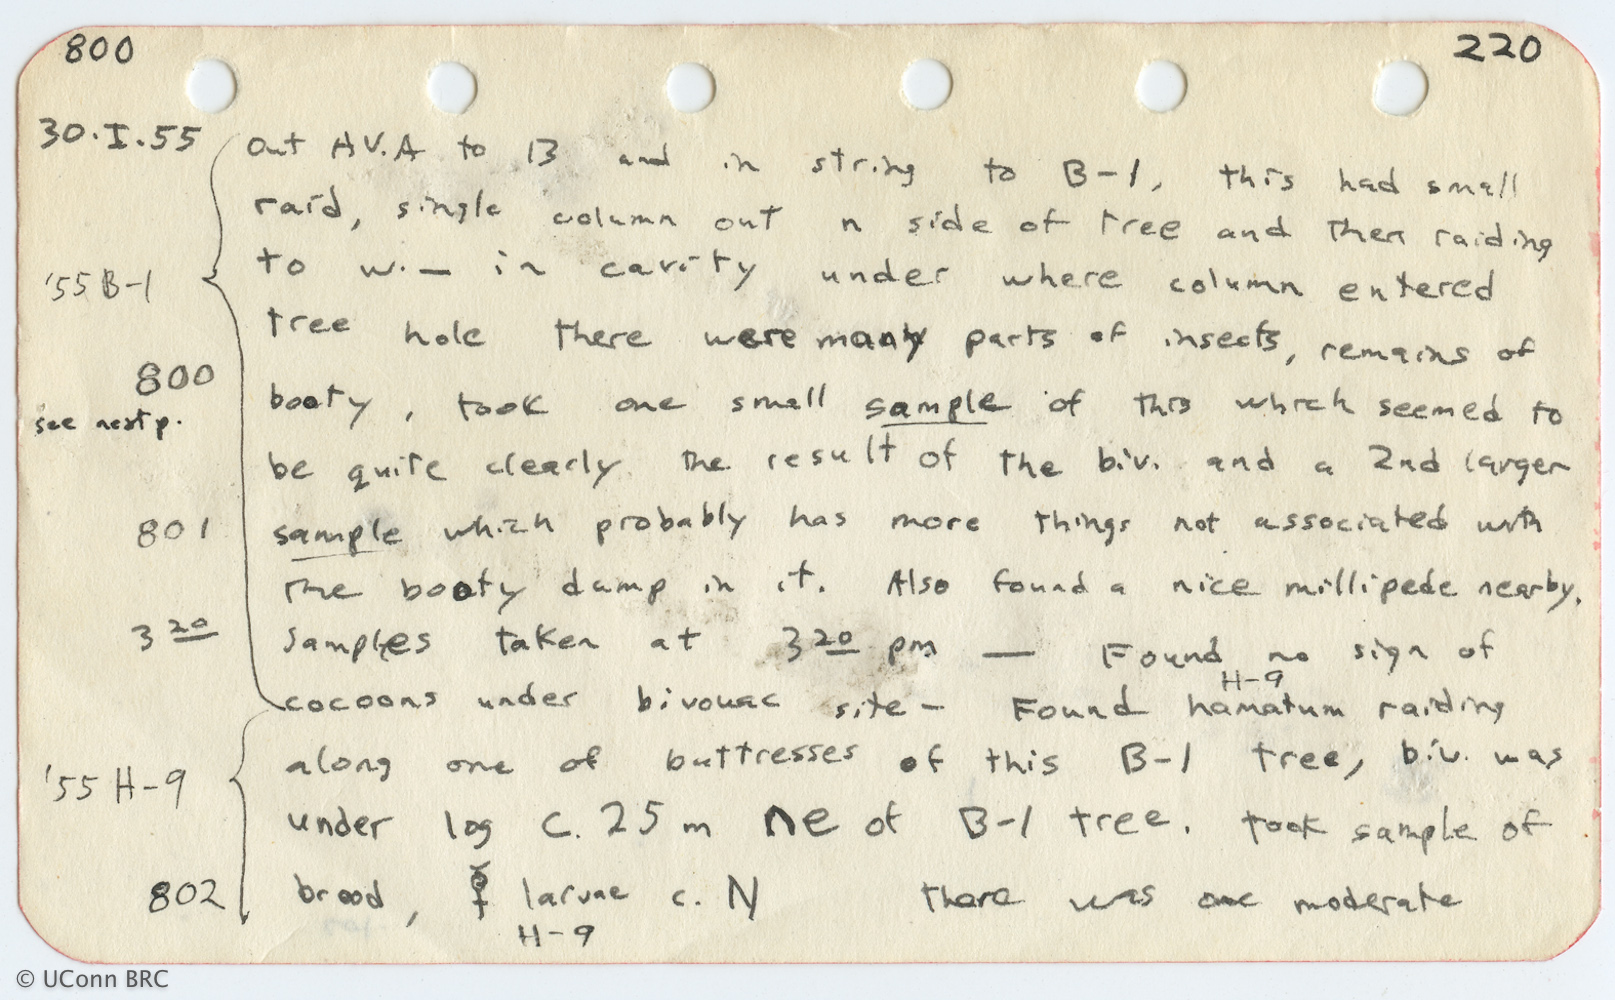 800
220
30.I.55
out A.V.A to 13 and in string to B-1, this had small
raid, single column out n side of tree and then raiding
to w. — in cavity under where column entered
'55 B-1
tree hole there were many parts of insects, remains of
800
booty, took one small sample of this which seemed to
see next p.
be quite clearly the result of the biv. and a 2nd larger
801
sample which probably has more things not associated with
the booty dump in it. Also found a nice millipede nearby.
3 20
Samples taken at 3 20 pm — Found no sign of
H-9
cocoons under bivouac site – Found hamatum raiding
along one of buttresses of this B-1 tree, biv. was
'55 H-9
under log c. 25 m ne of B-1 tree. took sample of
802
brood, ☿ larvae c. N there was one moderate
H-9
© UConn BRC